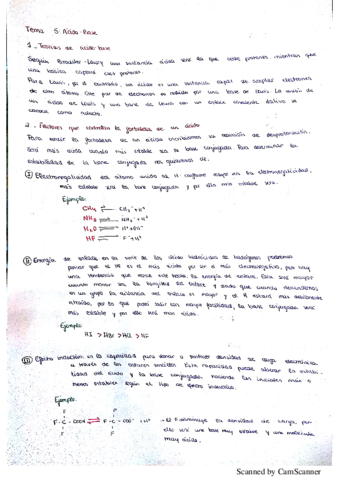 Tema 5: Ácido-Base
1. Teorías de ácido-base
Según Brønsted-Lowry una sustancia ácida será la que cede protones mientras que
una básica capaz de protones.
Para Lewis, por el contrario, un ácido es una sustancia capaz de aceptar electrones
de otro átomo. Este par de electrones es cedido por una base de Lewis. La unión de
un ácido de Lewis y una base de Lewis con un enlace covalente dativo se
conoce como aducto.
2. Factores que controlan la fortaleza de un ácido
Para medir la fortaleza de un ácido escribiremos su reacción de desprotonación.
Será más ácido cuanto más estable sea su base conjugada. Para determinar la
estabilidad de la base conjugada nos guiaremos de:
I Electronegatividad del átomo unido al H conforme mayor sea la electronegatividad,
más estable será la base conjugada y por ello más estable será.
Ejemplo:
CH4 CH3⁻ + H⁺
NH3 NH2⁻ + H⁺
H2O OH⁻ + H⁺
HF F⁻ + H⁺
II Energía de enlace en la serie de los ácidos hidrácidos de halógenos podríamos
pensar que el HF es el más ácido por ser el más electronegativo, pero hay
una tendencia que vence este hecho: la energía de enlace. Esta será mayor
cuanto menor sea la longitud de enlace y dado que cuando descendemos
en un grupo la distancia del enlace es mayor y el H estará más débilmente
atraído, por lo que podrá salir con mayor facilidad, la base conjugada será
más estable y por ello será más ácido.
Ejemplo:
HI > HBr > HCl > HF
III Efecto inductivo es la capacidad para donar o sustraer densidad de carga electrónica
a través de los enlaces sencillos. Esta capacidad puede afectar la estabili-
dad del ácido y la base conjugada, haciendo las iniciales más o
menos estables según el tipo de efecto inductivo.
Ejemplo:
F F
F - C - COOH F - C - COO⁻ + H⁺ → El F disminuye la densidad de carga, por
F F ello será una base muy estable y una molécula
muy ácida.
Scanned by CamScanner